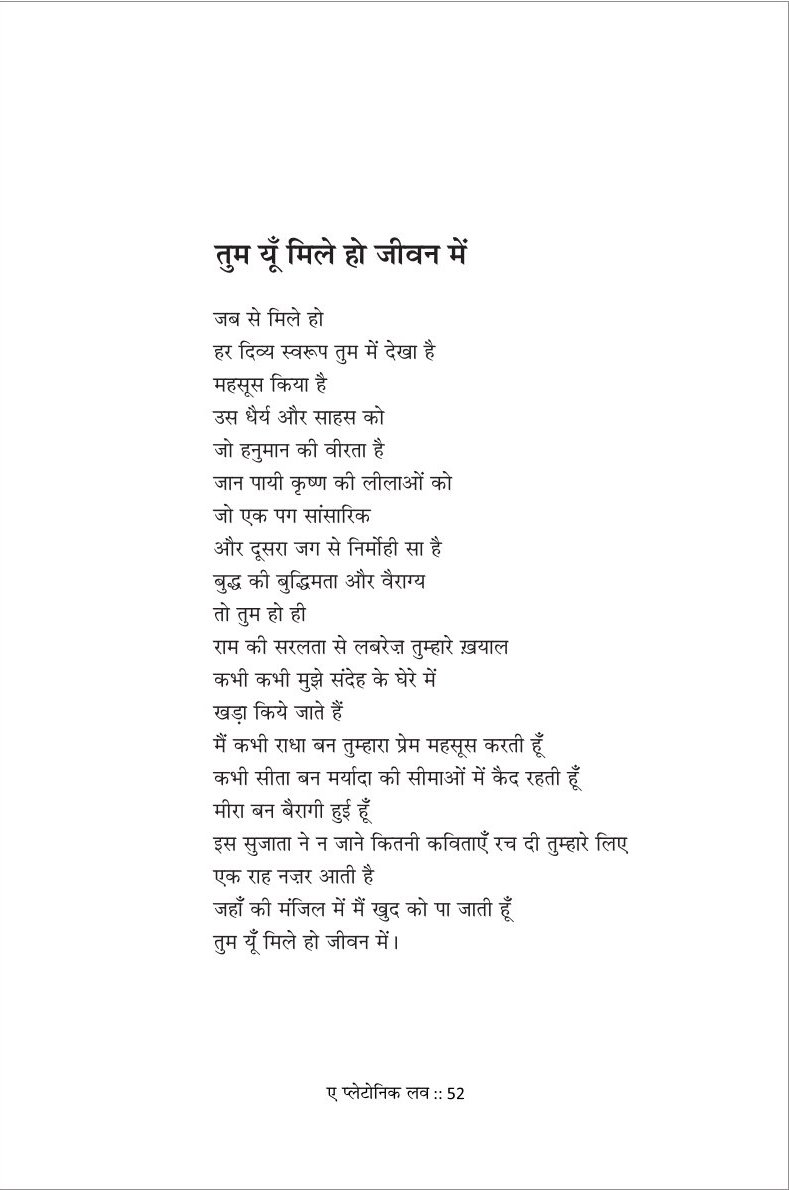 तुम यूँ मिले हो जीवन में
जब से मिले हो
हर दिव्य स्वरूप तुम में देखा है
महसूस किया है
उस धैर्य और साहस को
जो हनुमान की वीरता है
जान पायी कृष्ण की लीलाओं को
जो एक पग सांसारिक
और दूसरा जग से निर्मोही सा है
बुद्ध की बुद्धिमता और वैराग्य
तो तुम हो ही
राम की सरलता से लबरेज़ तुम्हारे ख़याल
कभी कभी मुझे संदेह के घेरे में
खड़ा किये जाते हैं
मैं कभी राधा बन तुम्हारा प्रेम महसूस करती हूँ
कभी सीता बन मर्यादा की सीमाओं में कैद रहती हूँ
मीरा बन बैरागी हुई हूँ
इस सुजाता ने न जाने कितनी कविताएँ रच दी तुम्हारे लिए
एक राह नज़र आती है
जहाँ की मंजिल में मैं खुद को पा जाती हूँ
तुम यूँ मिले हो जीवन में।
ए प्लेटोनिक लव :: 52